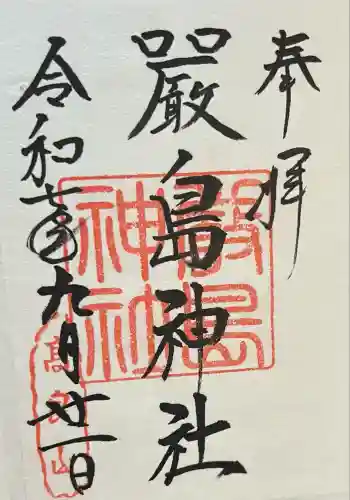 奉拝
嚴島神社
令和七年九月廿一日
嚴島
神社